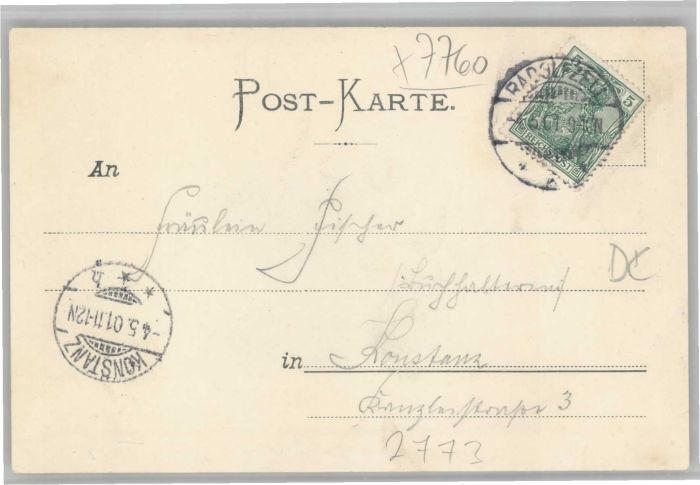 x 7760
POST-KARTE.
RADOLFZELL
5
REICHSPOST
An
Fräulein Fischer
(Buchhalterin)
DC
KONSTANZ
-4.5.01.11-12N
* b *
in Konstanz
Kanzleistraße 3
2773